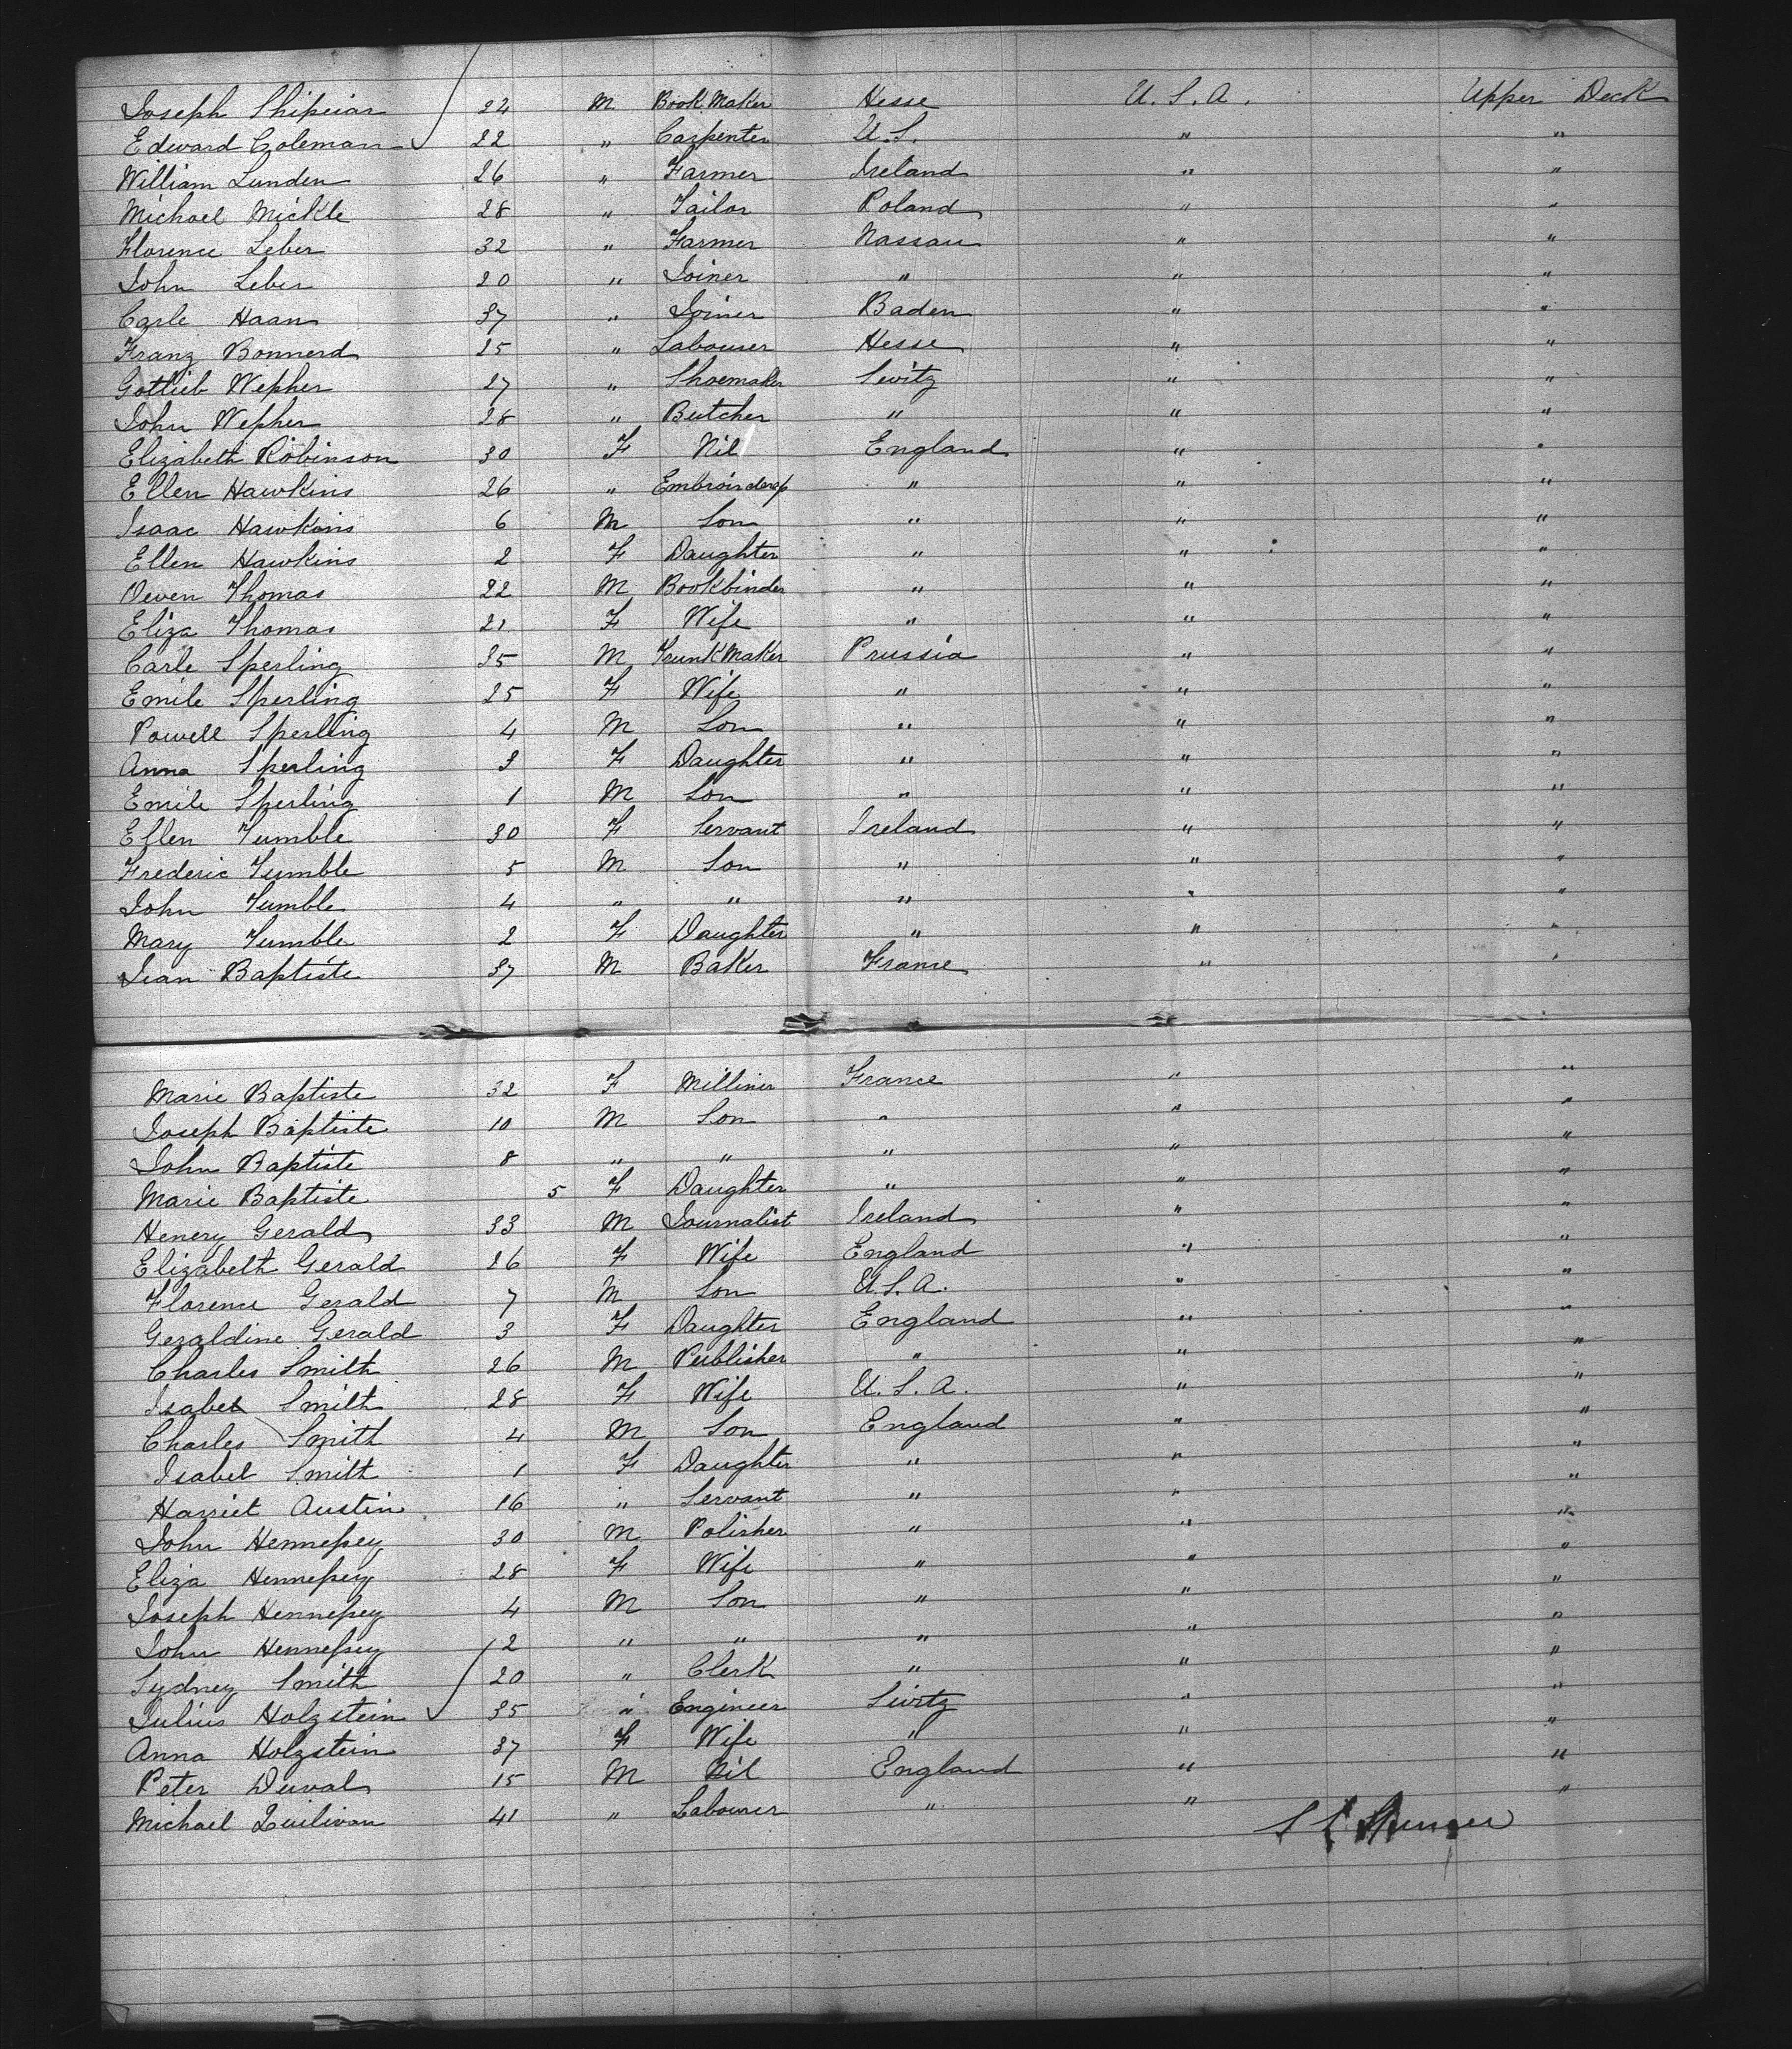 Joseph Shipeiar 24 M Book Maker Hesse U.S.A. Upper Deck
Edward Coleman 22 " Carpenter U.S. " "
William Lunden 26 " Farmer Ireland " "
Michael Mickle 28 " Tailor Poland " "
Florence Leber 32 " Farmer Nassau " "
John Leber 20 " Joiner " " "
Carle Haan 37 " Joiner Baden " "
Franz Bonnerd 25 " Labourer Hesse " "
Gottlieb Wepher 27 " Shoemaker Switz " "
John Wepher 28 " Butcher " " "
Elizabeth Robinson 30 F Nil England " "
Ellen Hawkins 26 " " " "
Isaac Hawkins 6 M Son " " "
Ellen Hawkins 2 F Daughter " " "
Owen Thomas 22 M Bookbinder " " "
Eliza Thomas 21 F Wife " " "
Carle Sperling 35 M Trunk Maker Prussia " "
Emile Sperling 25 F Wife " " "
Powell Sperling 4 M Son " " "
Anna Sperling 3 F Daughter " " "
Emile Sperling 1 M Son " " "
Ellen Tumble 30 F Servant Ireland " "
Frederic Tumble 5 M Son " " "
John Tumble 4 " " " " "
Mary Tumble 2 F Daughter " " "
Jean Baptiste 37 M Baker France " "
Marie Baptiste 32 F Milliner France " "
Joseph Baptiste 10 M Son " " "
John Baptiste 8 " " " " "
Marie Baptiste 5 F Daughter " " "
Henery Gerald 33 M Journalist Ireland " "
Elizabeth Gerald 26 F Wife England " "
Florence Gerald 7 M Son U.S.A. " "
Geraldine Gerald 3 F Daughter England " "
Charles Smith 26 M Publisher " " "
Isabel Smith 28 F Wife U.S.A. " "
Charles Smith 4 M Son England " "
Isabel Smith 1 F Daughter " " "
Harriet Austin 16 " Servant " " "
John Hennepey 30 M Polisher " " "
Eliza Hennepey 28 F Wife " " "
Joseph Hennepey 4 M Son " " "
John Hennepey 2 " " " " "
Sydney Smith 20 " Clerk " " "
Julius Holzstein 35 " Engineer Switz " "
Anna Holzstein 37 F Wife " " "
Peter Duval 15 M Nil England " "
Michael Quilivan 41 " Labourer " " "